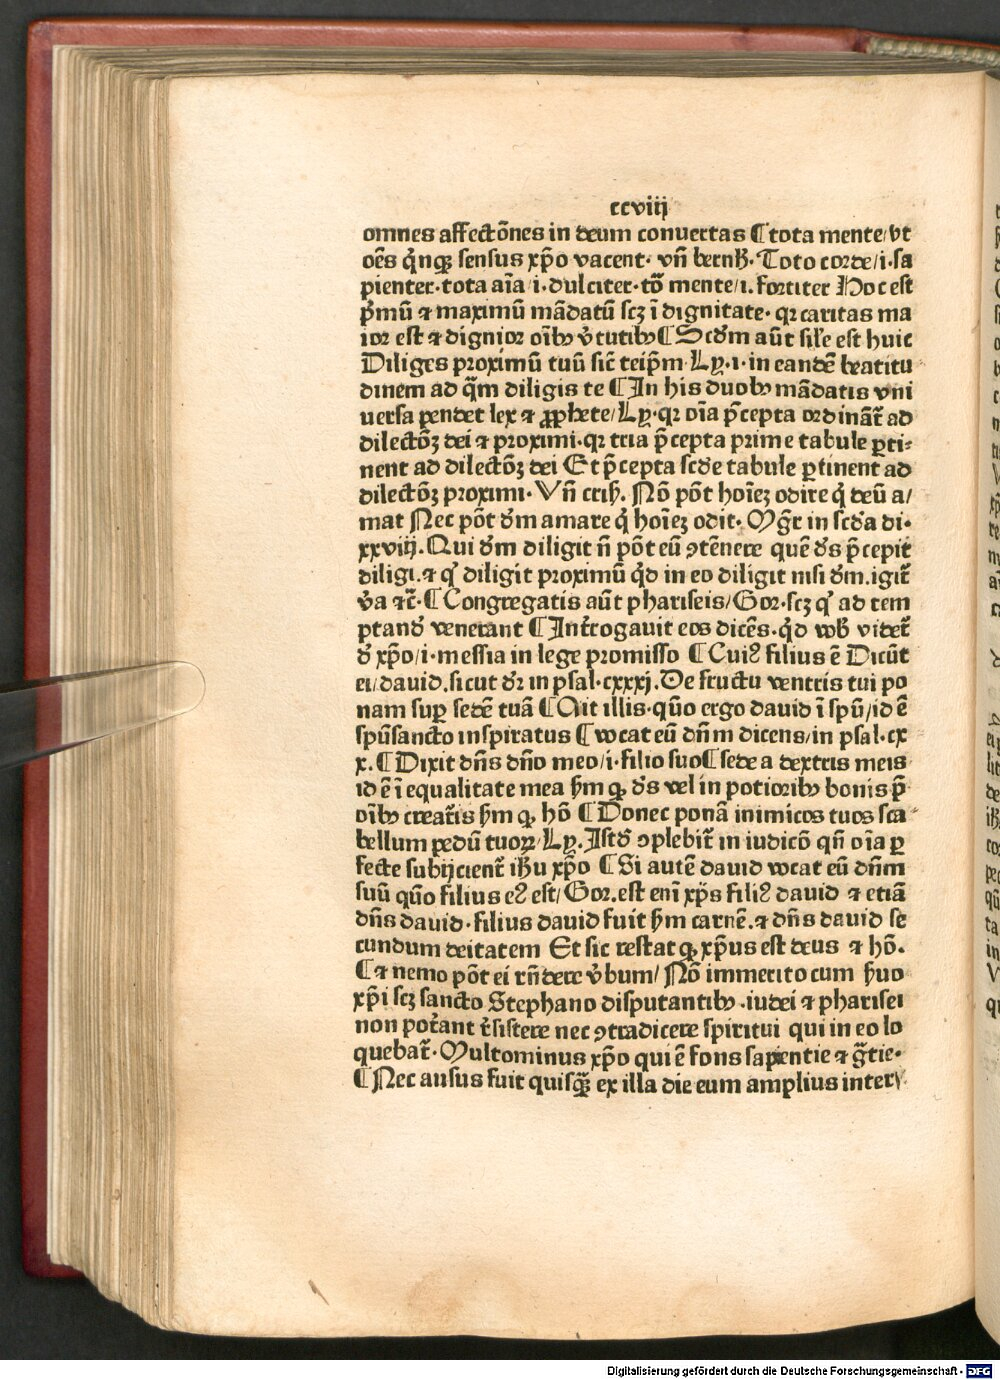 ccviij
omnes affectōnes in deum conuertas ¶tota mente/vt
oēs q̇nqꝫ sensus xp̄o vacent· vn̄ bernꝰ. Toto corde/i·sa
pienter·tota aīa/i·dulciter·to͞ mente/i. fortiter Hoc est
p̄mū ⁊ maximū mādatū scꝫ ī dignitate· qꝛ caritas ma
ior est ⁊ dignior oībꝰ v̇tutibꝰ ¶Scd̄m aūt sil̄e est huic
Diliges proximū tuū sic̄ teip̄m·Ly.i·in eandē beatitu
dinem ad q̄m diligis te ¶In his duobꝰ mādatis vni
uersa pendet lex ⁊ ꝓphete/Ly·qꝛ oīa p̄cepta ordināt̄ ad
dilectōꝫ dei ⁊ proximi·qꝛ tria p̄cepta prime tabule ꝑti-
nent ad dilectōꝫ dei Et p̄cepta scd̄e tabule ꝑtinent ad
dilectōꝫ proximi·Vn̄ criẖ. Nō pōt hoīeꝫ odire q̇ deū a/
mat Nec pōt d̄m amare q̇ hoīeꝫ odit· Mgr̄ in scd̄a di·
xxviij.Qui d̄m diligit n̄ pōt eū ꝯtēnere quē d̄s p̄cepit
diligi.⁊ qͥ diligit proximū q̇d in eo diligit nisi d̄m.igit̄
v̇a ⁊c̄·¶Congregatis aūt phariseis/Gor·scꝫ qͥ ad tem
ptand̄ venerant ¶Int̄rogauit eos dicēs·q̇d vob̄ videt̄
d̄ xp̄o/i·messia in lege promisso ¶Cuiꝰ filius ē Dicūt
ei/dauid.sicut d̄r in psal·cxxxj.De fructu ventris tui po
nam suꝑ sedē tuā ¶Ait illis·quō ergo dauid ī spū/id ē
spūsancto inspiratus ¶vocat eū dn̄m dicens/in psal·cx
x.¶Dixit dn̄s dn̄o meo/i·filio suo¶sede a dextris meis
id ē ī equalitate mea ẖm qꝫ d̄s vel in potioribꝰ bonis p̄
oībꝰ creat̄is ẖm qꝫ hō ¶Donec ponā inimicos tuos sca
bellum pedū tuoꝝ/Ly.Istd̄ ꝯplebit̄ in iudicō qn̄ oīa ꝑ
fecte subijcient̄ ih̄u xp̄o ¶Si autē dauid vocat eū dn̄m
suū quō filius eꝰ est/Gor.est enī xp̄s filiꝰ dauid ⁊ etiā
dn̄s dauid·filius dauid fuit ẖm carnē.⁊ dn̄s dauid se
cundum deitatem Et sic restat qꝫ xp̄us est deus ⁊ hō.
¶⁊ nemo pōt ei rn̄dere v̇bum/Nō immerito cum ẖuo
xp̄i scꝫ sancto Stephano disputantibꝰ·iudei ⁊ pharisei
non pot̄ant r̄sistere nec ꝯtradicere spiritui qui in eo lo
quebat̄·Multominus xp̄o qui ē fons sapientie ⁊ gr̄tie·
¶Nec ausus fuit quisq̄ꝫ ex illa die eum amplius inter
Digitalisierung gefördert durch die Deutsche Forschungsgemeinschaft - DFG